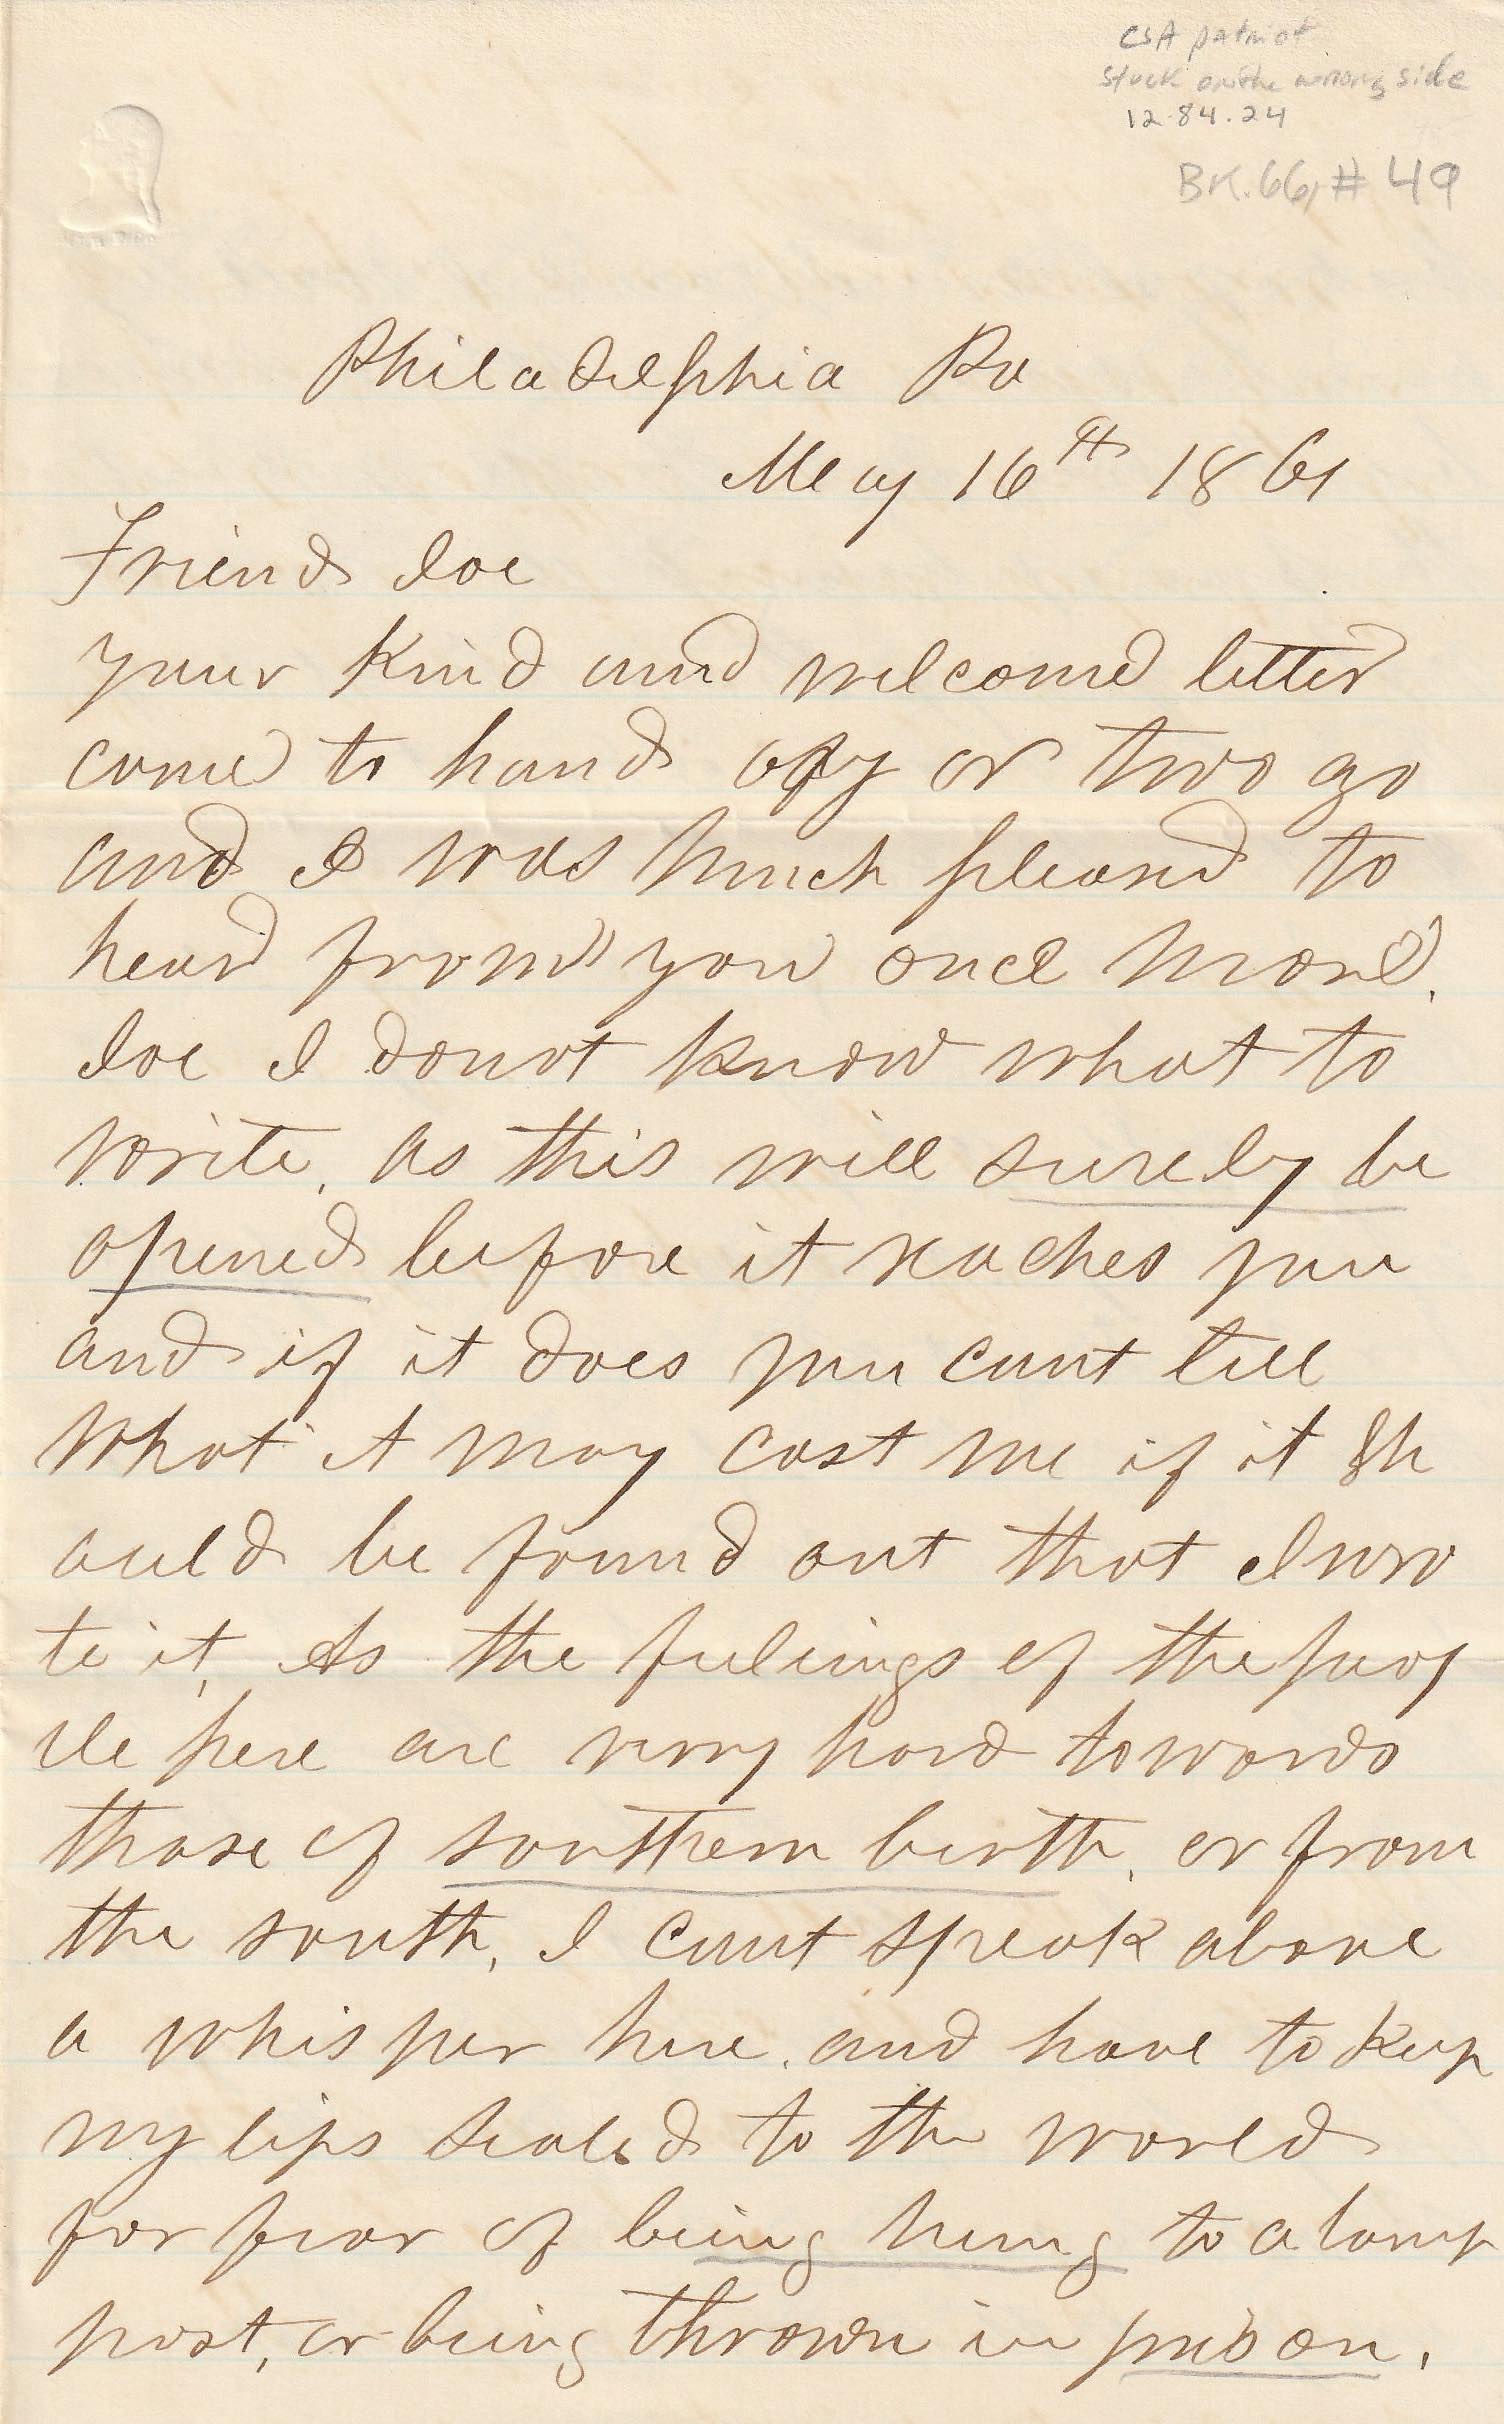 CSA patriot
stuck on the wrong side
12.84.24
BK.66, # 49
Philadelphia Pa
May 16th 1861
Friend Joe
your kind and welcome letter
come to hand or two go
and I was much pleasd to
hear from you once more.
Joe I donot know what to
write, as this will surely be
opened before it reaches you
and if it does you cant tell
what it may cost me if it Sh
ould be found out that I wro
te it, As the feelings of the peop
le here are verry hard towards
those of southern birth, or from
the south, I cant speak above
a whisper here, and have to keep
my lips sealed to the world
for fear of being hung to a lamp
post, or being thrown in prison.